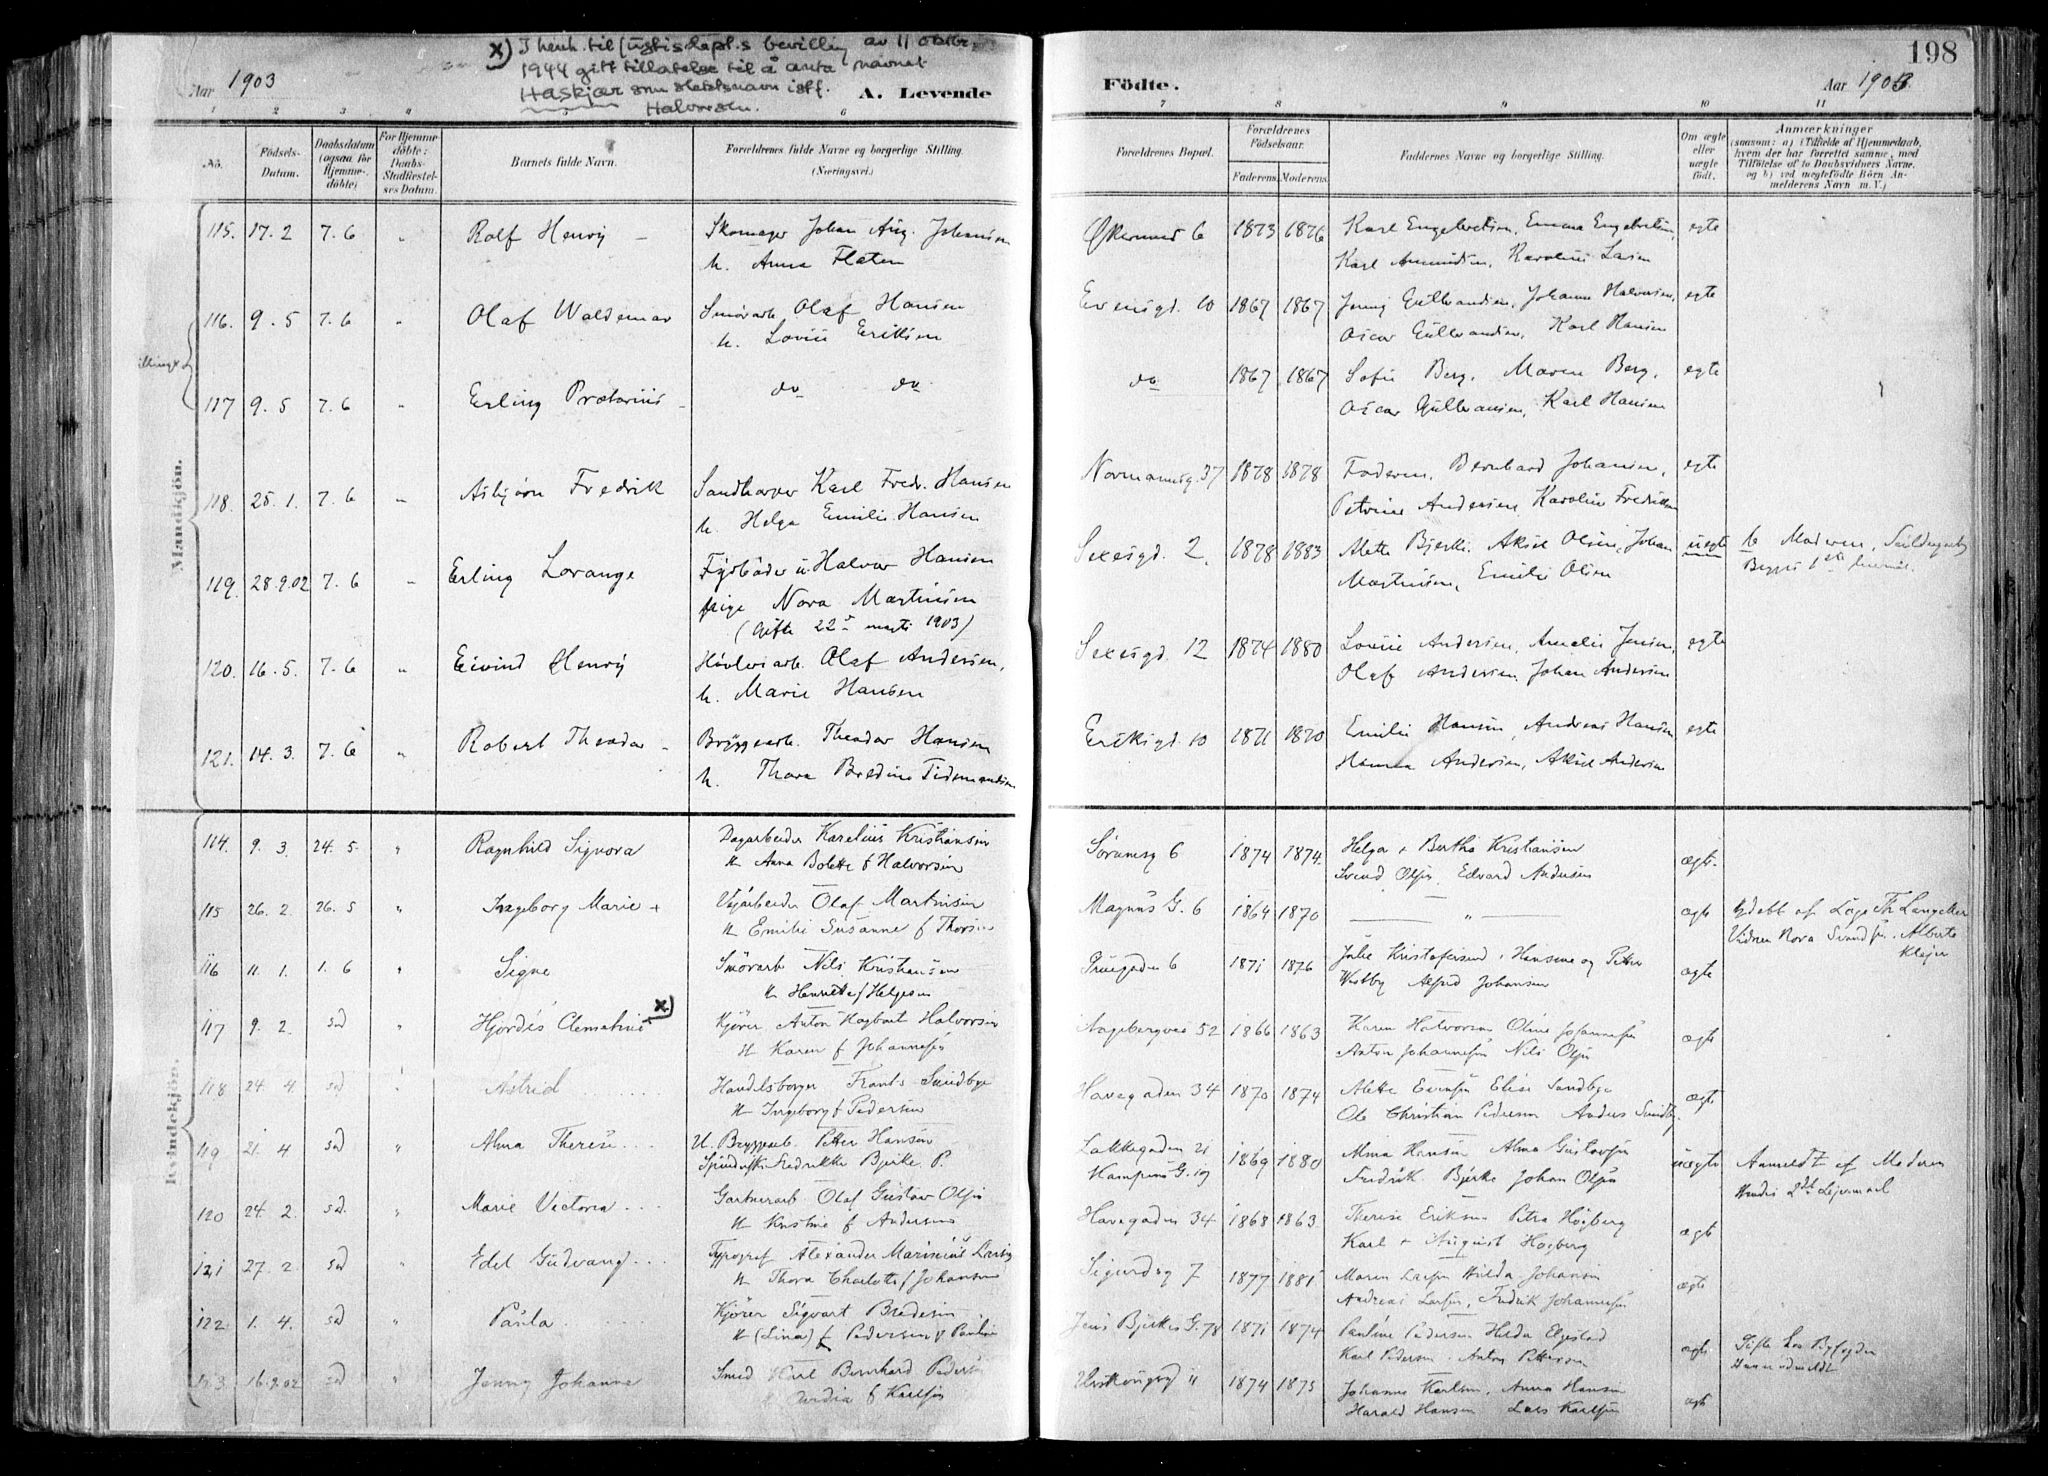 x) I henh. til justisdept.s bevilling av 11 oktbr.
1944 gitt tillatelse til å anta navnet
Haskjær som slektsnavn istf.
Halvorsen.
Aar 1903
A. Levende
Födte.
Aar 1903
198
1 2 3 4 5 6 7 8 9 10 11
No.
Födsels-Datum.
Daabsdatum (ogsaa for Hjemme-döbte)
For Hjemme-döbte: Daabs-Stadfæstelses Datum.
Barnets fulde Navn.
Forældrenes fulde Navne og borgerlige Stilling. (Næringsvei.)
Forældrenes Bopæl.
Forældrenes Födselsaar.
Faderens Moderens
Faddernes Navne og borgerlige Stilling.
Om ægte eller uægte födt.
Anmærkninger
(saasom: a) i Tilfælde af Hjemmedaab, hvem der har forrettet samme, med Tilföielse af to Daabsvidners Navne. og b) ved uegtefödte Börn Anmelderens Navn m. V.)
Mandkjön.
115. 17. 2 7. 6 " Rolf Henry Skomager Johan Aug. Johansen 1873 1876 Karl Engebretsen, Emma Engebretsen, egte
h. Anna Flaten Karl Amundsen, Karoline Larsen
116. 9. 5 7. 6 " Olaf Waldemar Smörarb. Olaf Hansen Evensgd. 10 1867 1867 Jenny Gulbrandsen, Johanne Halvorsen, egte
h. Lovise Eriksen Oscar Gulbrandsen, Karl Hansen
117 9. 5 7. 6 " Erling Prætorius do do do 1867 1867 Sofie Berg, Maren Berg, egte
Oscar Gulbransen, Karl Hansen
118. 25. 1. 7. 6 " Asbjørn Fredrik Karl Fredr. Hansen Normannsg. 37 1878 1878 Faderen, Bernhard Johansen, egte
h. Helga Emilie Hansen Petrine Andersen, Karoline Fredriksen
119. 28.9.02 7. 6 " Erling Lorange Fyrböder u. Halvor Hansen Sexesgd. 2 1878 1883 Alette Bjerke, Aksel Olsen, Johan uegte b Moderen,
pige Nora Martinsen Martinsen, Emilie Olsen
(Gifte 22 marts 1903)
120. 16. 5. 7. 6 " Eivind Henry Hövleriarb. Olaf Andersen, Sexesgd. 12 1874 1880 Lovise Andersen, Amalie Jensen, egte
h. Marie Hansen Olaf Andersen, Johan Andersen
121. 14. 3. 7. 6 " Robert Theodor Bryggearb. Theodor Hansen Eriksgd. 10 1871 1870 Emilie Hansen, Andreas Hansen, egte
h. Thora Bredine Tidemandsen Hanna Andersen, Aksel Andersen
Kvindekjön.
114. 9. 3. 24. 5. " Ragnhild Signora Dagarbeider Karelius Kristiansen Sörumsg 6 1874 1874. Helga + Bertha Kristiansen ægte.
H Anna Bolette f Halvorsen Svend Olsen Edvard Andersen
115 26. 2. 26. 5 " Ingeborg Marie + Veiarbeider Olaf Martinsen Magnus G. 6 1864 1870 " ægte
H Emilie Susanne f Thorsen
116 11. 1. 1. 6 " Signe Smörarb Nils Kristiansen 6 1871 1876 Julie Hansine og Petter ægte
H Henriette f Helgesen Westby Alfred Johansen
117 9. 2. sd " Hjördis Clementine x) Kjörer Anton Hagbart Halvorsen Aagebergvei 52 1866 1863 Karen Halvorsen Oline Johannesen ægte
H Karen f Johannesen Anton Johannesen Nils Olsen
118 24. 4. sd " Astrid Handelsborger Frants Sundbye Havegaden 34 1870 1874 Alette Evensen Elise Sundbye ægte
H Ingeborg f Pedersen Ole Christian Pedersen Anders Sundby
119 21. 4 sd " Alma Therese U. Bryggearb. Petter Hansen Lakkegaden 21 1869 1880 Alma Hansen Alma Gustavsen uægte Anmeldt af Moderen
Fredrikke Bjerke P. Kampens G. 19 Fredrik Bjerke Johan Olsen Hendes 2det Leiermaal
120 24. 2. sd. " Marie Victoria Gartnerarb Olaf Gustav Olsen Havegaden 34 1868 1863. Therese Eriksen Petra Högberg ægte
H Kristine f Andersen Karl + August Högberg
121 27. 2. sd " Edel Gudvang Typograf Alexander Marinius Larsen Sigurdsg 7 1877 1881 Maren Larsen Hilda Johansen ægte
H Thora Charlotte f Johansen Andreas Larsen, Fredrik Johannesen
122 1. 4. sd " Paula Kjörer Sigvart Bredesen Jens Bjelkes G. 78 1871 1874 Pauline Pedersen Hilda Elgestad ægte
H (Lina) f Pedersen Pauline Karl Pedersen. Anton Pettersen
123. 16.9.02 sd " Jenny Johanne Smed Karl Bernhard Pedersen 1874 1875 Johannes Karlsen, Anna Hansen ægte
f Karlsen Harald Hansen Lars Karlsen